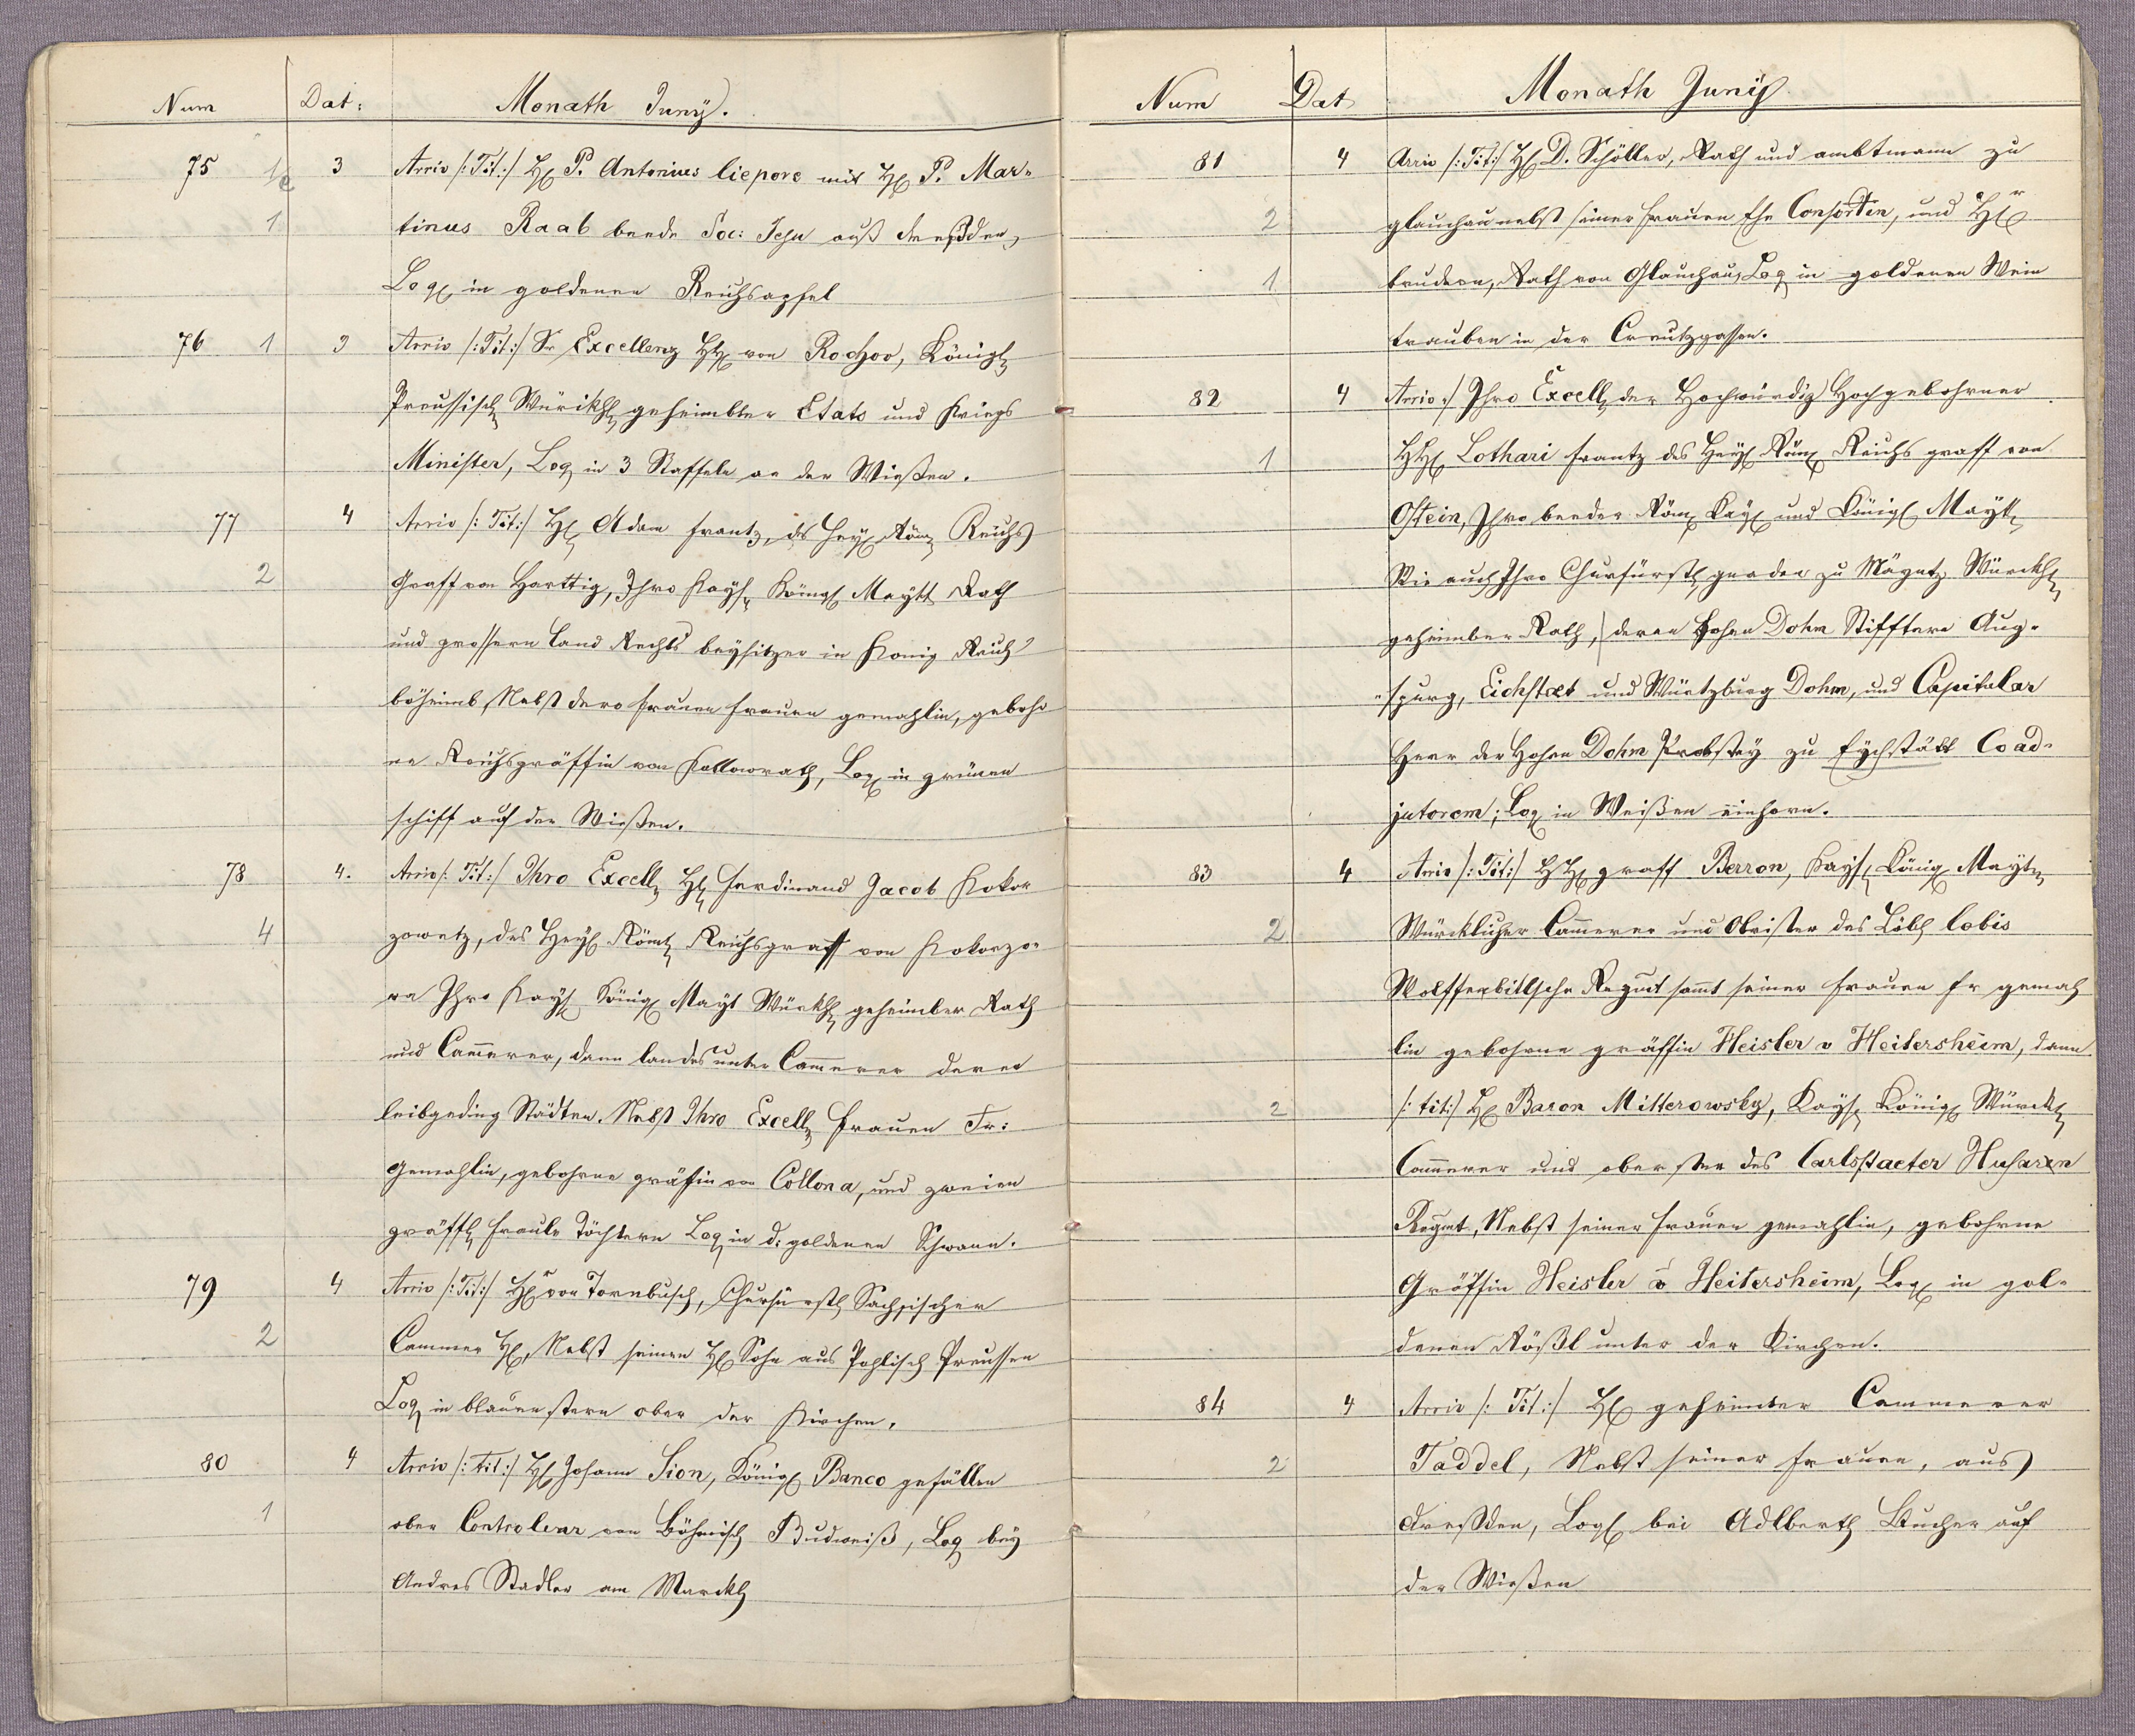 Num Dat: Monath Juny.
75 3 Arriv /: Tit:/ H. P. Antonius liepore mit H. P. Mar-
1 tinus Raab beede Soc: Jesu auß dreßden,
Log. in goldenen Reichsapfel
76 1 3 Arriv /: Tit:/ Sr Excellenz HH. von Rochov, Königl.
Preussisch Würikhl. geheimbter Etats und Kriegs
Minister, Log. in 3 Staffeln an der Wießen.
77 4 Arriv /: Tit:/ H. Adam frantz, des Heyl. Röm. Reichs
2 Graff von Harttig, Ihro Kayl. Königl. Maytt Rath
und grossern Land Rechts beysitzer in König Reich
böheimb, Nebst dero frauen frauen gemahlin, gebohr
ne Reichsgräffin von Kollowrath, Log. in grünen
schiff auf der Wießen.
78 4. Arriv /: Tit:/ Ihro Excell. H. Ferdinand Jacob Kokor
4 zowetz, des Heyl. Röml. Reichsgraff von Kokorzo-
va Ihro Kayl. Königl. Mayt Würkhl. geheimber Rath
und Cam̄erer, dann landes unter Cam̄erer deren
leibgeding Städten. Nebst Ihro Excell. frauen Fr:
Gemahlin, gebohrne gräfin von Collona, und zweien
gräffl. Freule Töchtern Log. in d: goldenen Schwann.
79 4 Arriv /: Tit:/ Hr. von Tornbusch, Churfürstl. Sachsischer
2 Cammer H., Nebst seinen H. Sohn aus Pohlisch Preussen
Log. in blauen stern ober der Kirchen.
80 4 Arriv /: tit:/ H. Johann Sion, Königl. Banco gefällen
1 ober Controleur von Böhmisch Budweiß, Log. bey
Andres Stadler am Marckh
Num Dat Monath Juny
81 4 Arriv /: Tit:/ H. D. Schöller, Rath und ambtmann zu
2 glauchau nebst seiner frauen Ehe Consortin, und Hr.
1 brudern, Rath von Glauchau, Log. in goldenen Wein
trauben in der Creutzgassen.
82 4 Arriv:/ Ihro Excell. der Hochwürdig Hochgebohrner
1 HH. Lothari frantz des Heyl. Röm. Reichs graff von
Ostein, Ihro beeder Röm. Kay. und Königl. Maytt.
Wie auch Ihro Churfürstl. gnaden zu Mayntz Würckhl.
geheimber Rath, deren hohen Dohm Stifftern Aug-
spurg, Eichstaet und Würtzburg Dohm, und Capitular
Herr der Hohen Dohm Probstey zu Eychstätt Coad-
jutorem; Log. in Weißen einhorn.
83 4 Arriv /: Tit:/ HH. graff Berron, Kayl. Königl. Mayt.
2 Würcklicher Cam̄erer und Obrister des Löbl. lobis
Wolffenbittlsche Regmt sammt seiner frauen fr gemah
lin gebohrne gräffin Heisler v Heitersheim, dann
2 /: tit:/ H. Baron Mitterowsky, Kayl. Königl. Würckl.
Cam̄erer und oberster des Carlstaeter Husaren
Regmt, Nebst seiner frauen gemahlin, gebohrne
Gräffin Heisler v Heitersheim, Log. in gol-
denen Rößl unter der Kirchen.
84 4 Arriv /: Tit:/ H. geheimber Cammerer
2 Taddel, Nebst seiner frauen, aus
dreßden, Log. bei Adlberth Bucher auf
der Wießen